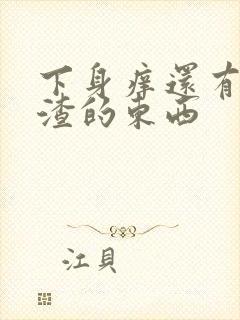 下身痒還有
渣的東西
江貝